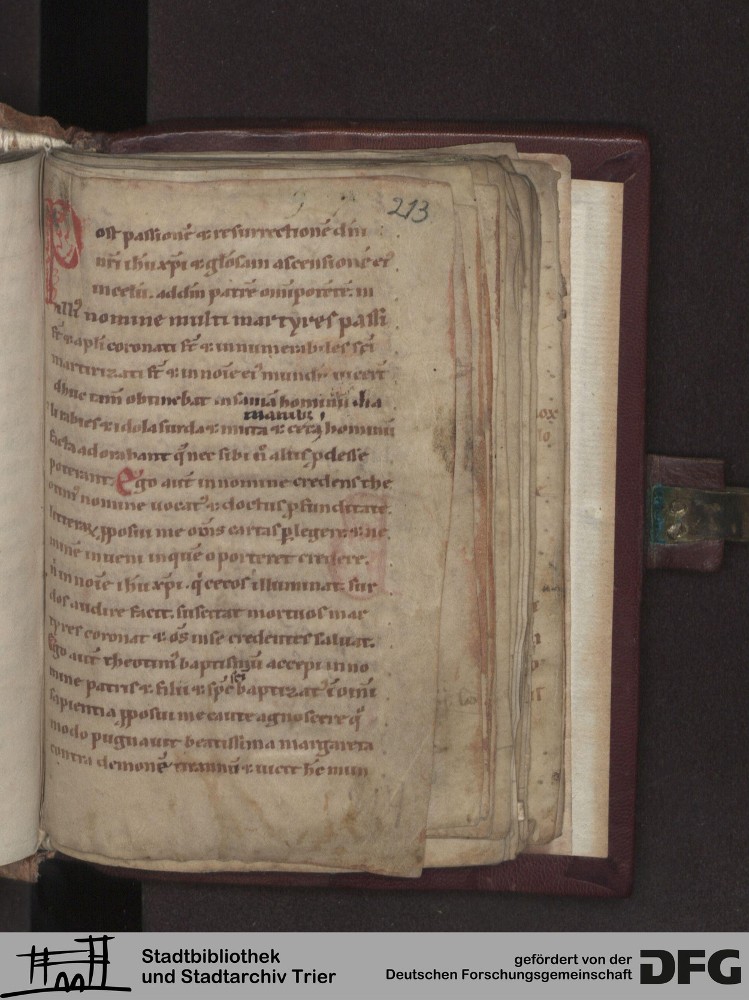 213
Post passionē ⁊ resurrectionē dn̄i
nr̄i ih̄u xp̄i ⁊ gl̄osam ascensionē ei⁹
in celū. ad dm̄ patrē om̄ipotētē. in
illi⁹ nomine multi martyres passi
st̄ ⁊ apl̄i coronati st̄ ⁊ innumerabiles sc̄i
martirizati st̄ ⁊ in noīe ei⁹ mundū vicert̄
adhuc enī obtinebat insania hominū dia
manib⁹
boli rabies ⁊ idola surda ⁊ muta ⁊ ceca hominū
facta adorabant q̄ nec sibi n̄ aliis p̄desse
poterant. Ego autē in nomine credens the
otim⁹ nomine vocat⁹ ⁊ doctus p̄funditatē
litterarꝝ p̄posui me om̄s cartas p̄legere ⁊ ne
minē inveni in quē oporteret credere.
n̄ in noīe ih̄u xp̄i. q̄ cecos illuminat. sur
dos audire facit. suscitat mortuos mar
tyres coronat ⁊ om̄s in se credentes salvat.
Ego autē theotim⁹ baptismū accepi in no
sc̄i
mine patris ⁊ filii ⁊ sp̄c baptizat⁹ ī om̄i
sapientia p̄posui me caute agnoscere q̄
modo pugnavit beatissima margareta
contra demonē tirannū ⁊ vicit hc̄ mun
ox
Stadtbibliothek
und Stadtarchiv Trier
gefördert von der
Deutschen Forschungsgemeinschaft
DFG